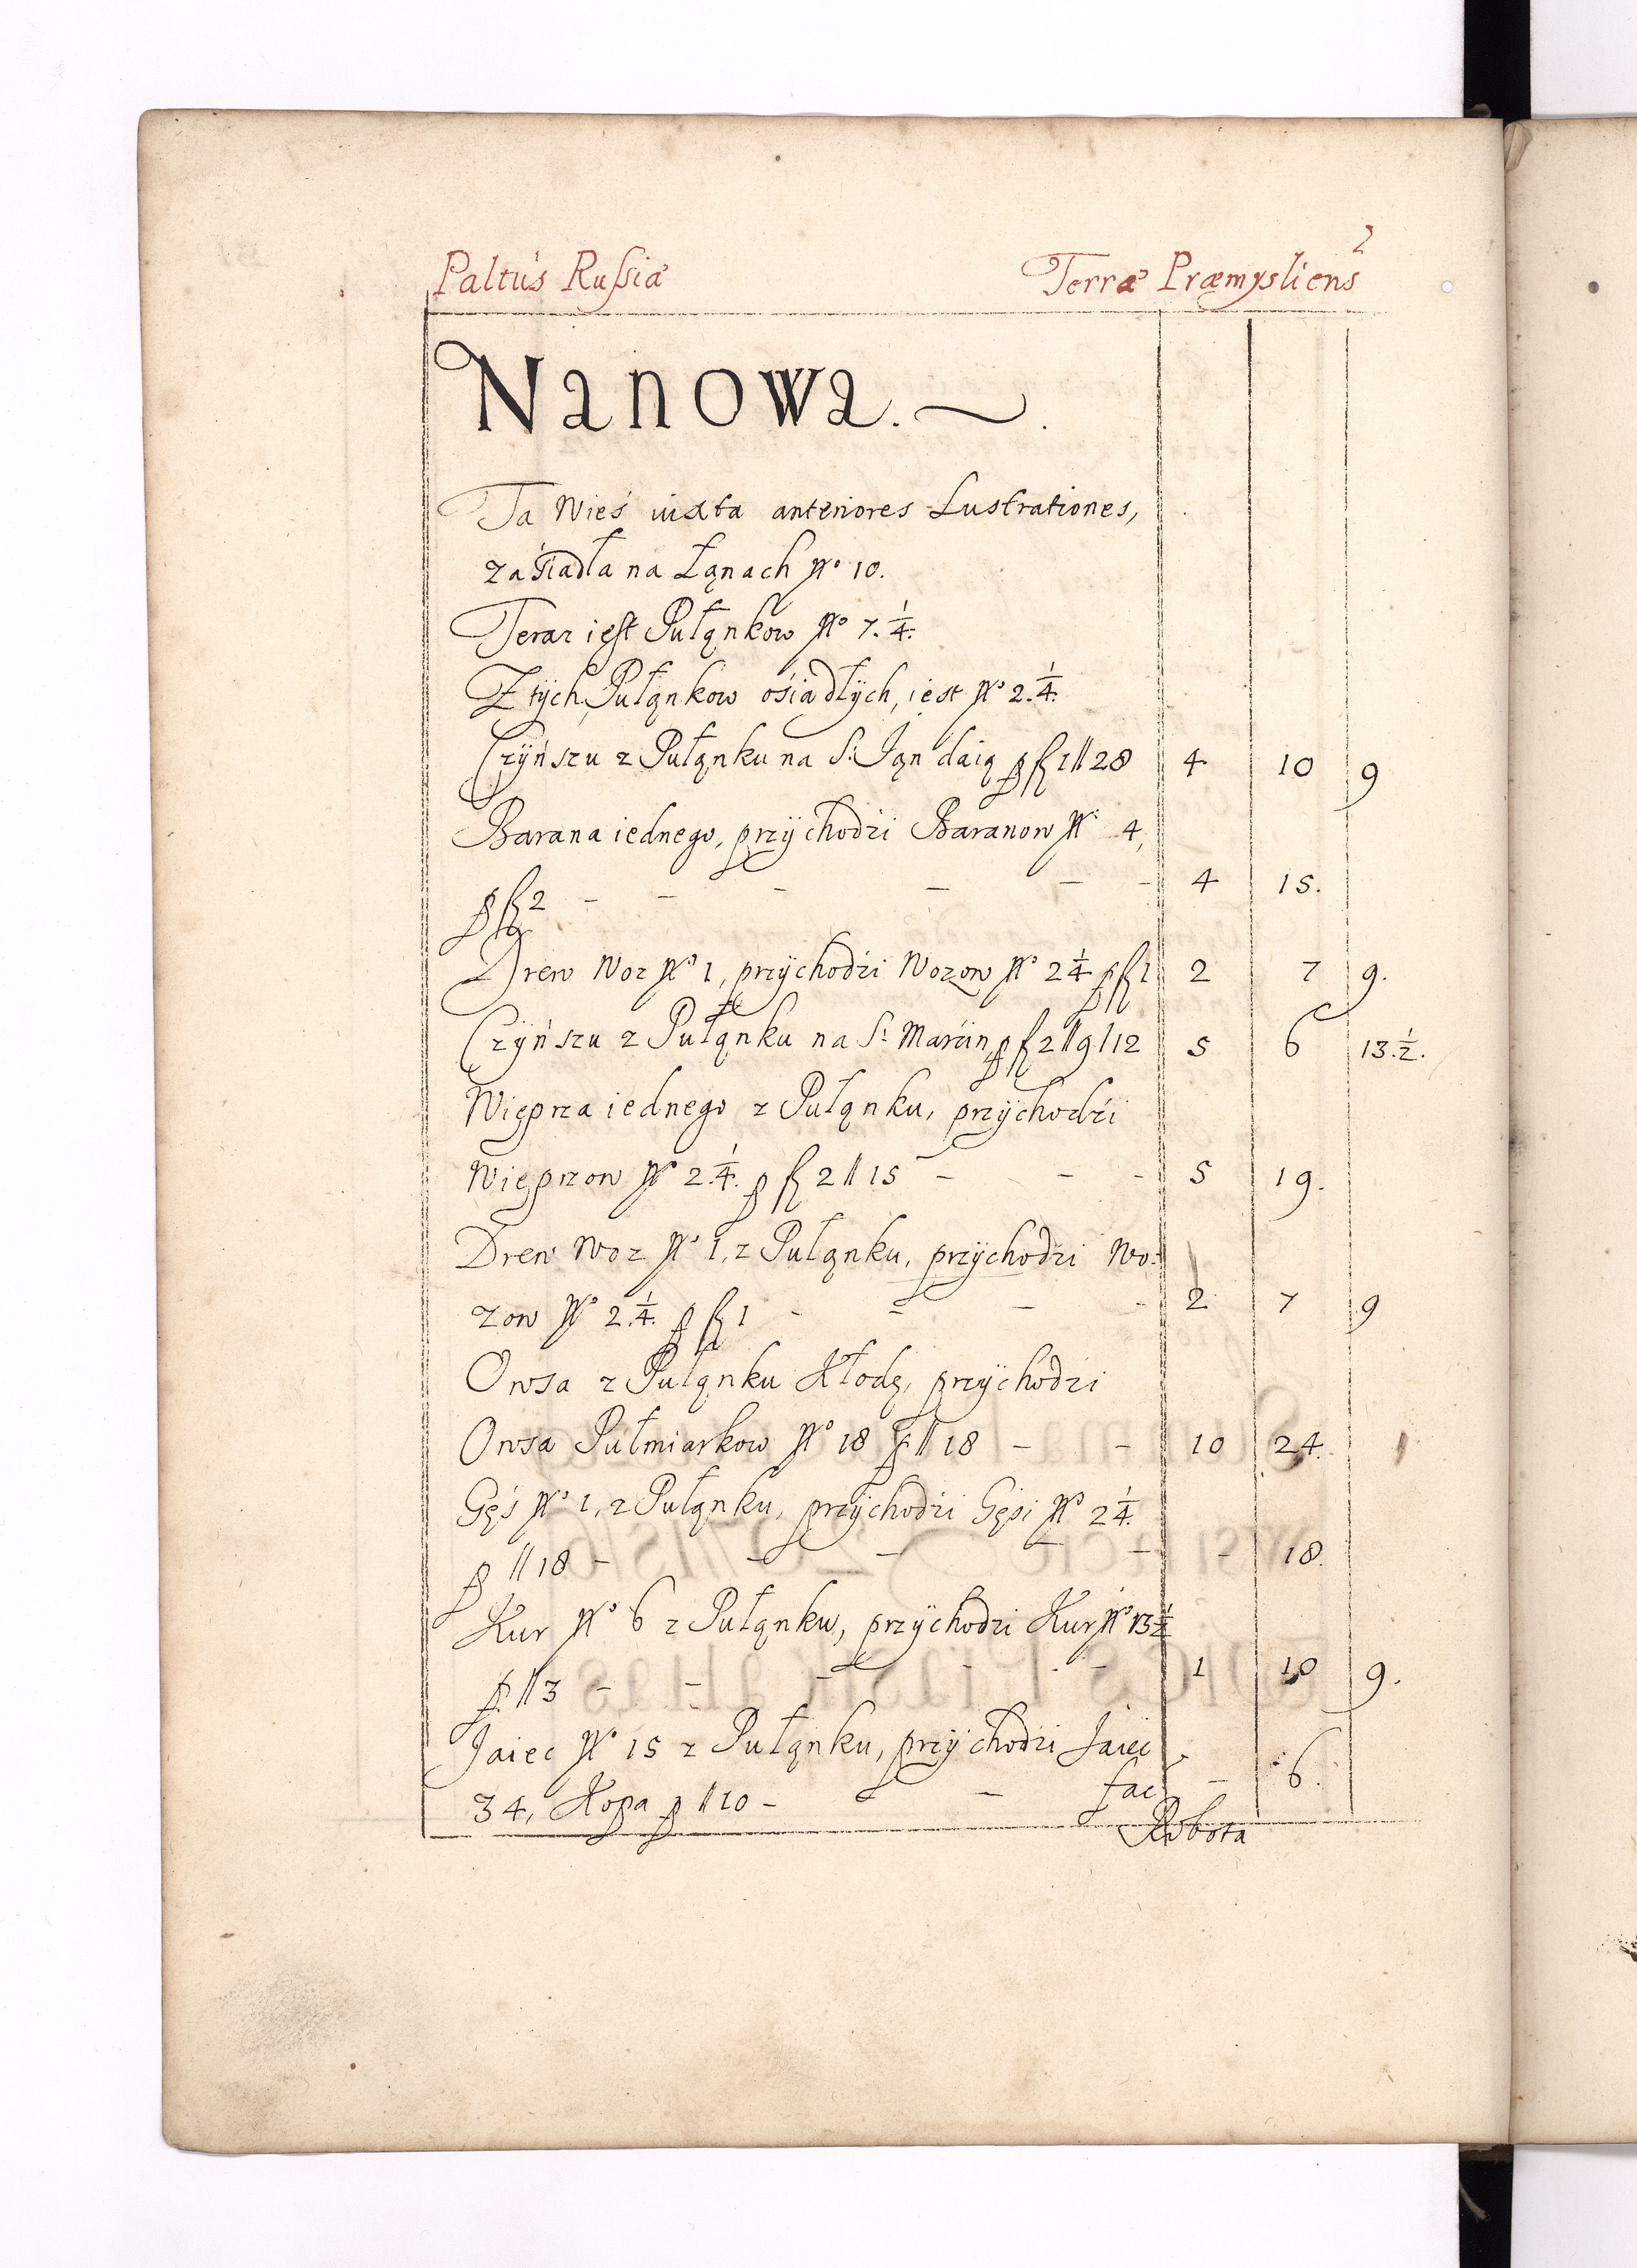 Paltus Russiæ Terræ Præmysliens
2
Nanowa.
Ta Wieś iuxta anteriores Lustrationes,
zaśiadła na Łąnach No 10.
Teraz iest Pułąnkow No 7. 1/4.
Z tÿch Pułąnkow ośiadłÿch, iest No 2. 1/4.
Czÿńszu z Pułąnku na S. Ląn daią p fl 1 // 28 4 10 9
Barana iednego, przÿchodźi Baranow No 4,
p fl 2 - - - - - - 4 15.
Drew Woz No 1, przÿchodźi Wozow No 2 1/4 p fl 1 2 7 9.
Czÿńszu z Pułąnku na S. Marćin p f 2 // 9 / 12 5 6 13. 1/2.
Wieprza iednego z Pułąnku, przÿchodźi
Wieprzow No 2. 1/4. p fl 2 // 15 - - - 5 19.
Drew Woz No 1, z Pułąnku, przÿchodźi Wo:
zow No 2. 1/4. p fl 1 - = - - 2 7 9
Owsa z Pułąnku Kłodę, przÿchodzi
Owsa Pułmiarkow No 18 p // 18 - - 10 24.
Gęś No 1, z Pułąnku, przÿchodźi Gęśi No 2 1/4.
p // 18 - - - - - - 18.
Kur No 6 z Pułąnku, przÿchodzi Kur No 13 1/2
p // 3 - - - - - - 1 10 9.
Jaiec No 15 z Pułąnku, przÿchodźi Jaiec
34, Kopa p // 10 - - - fac - 6.
Robota